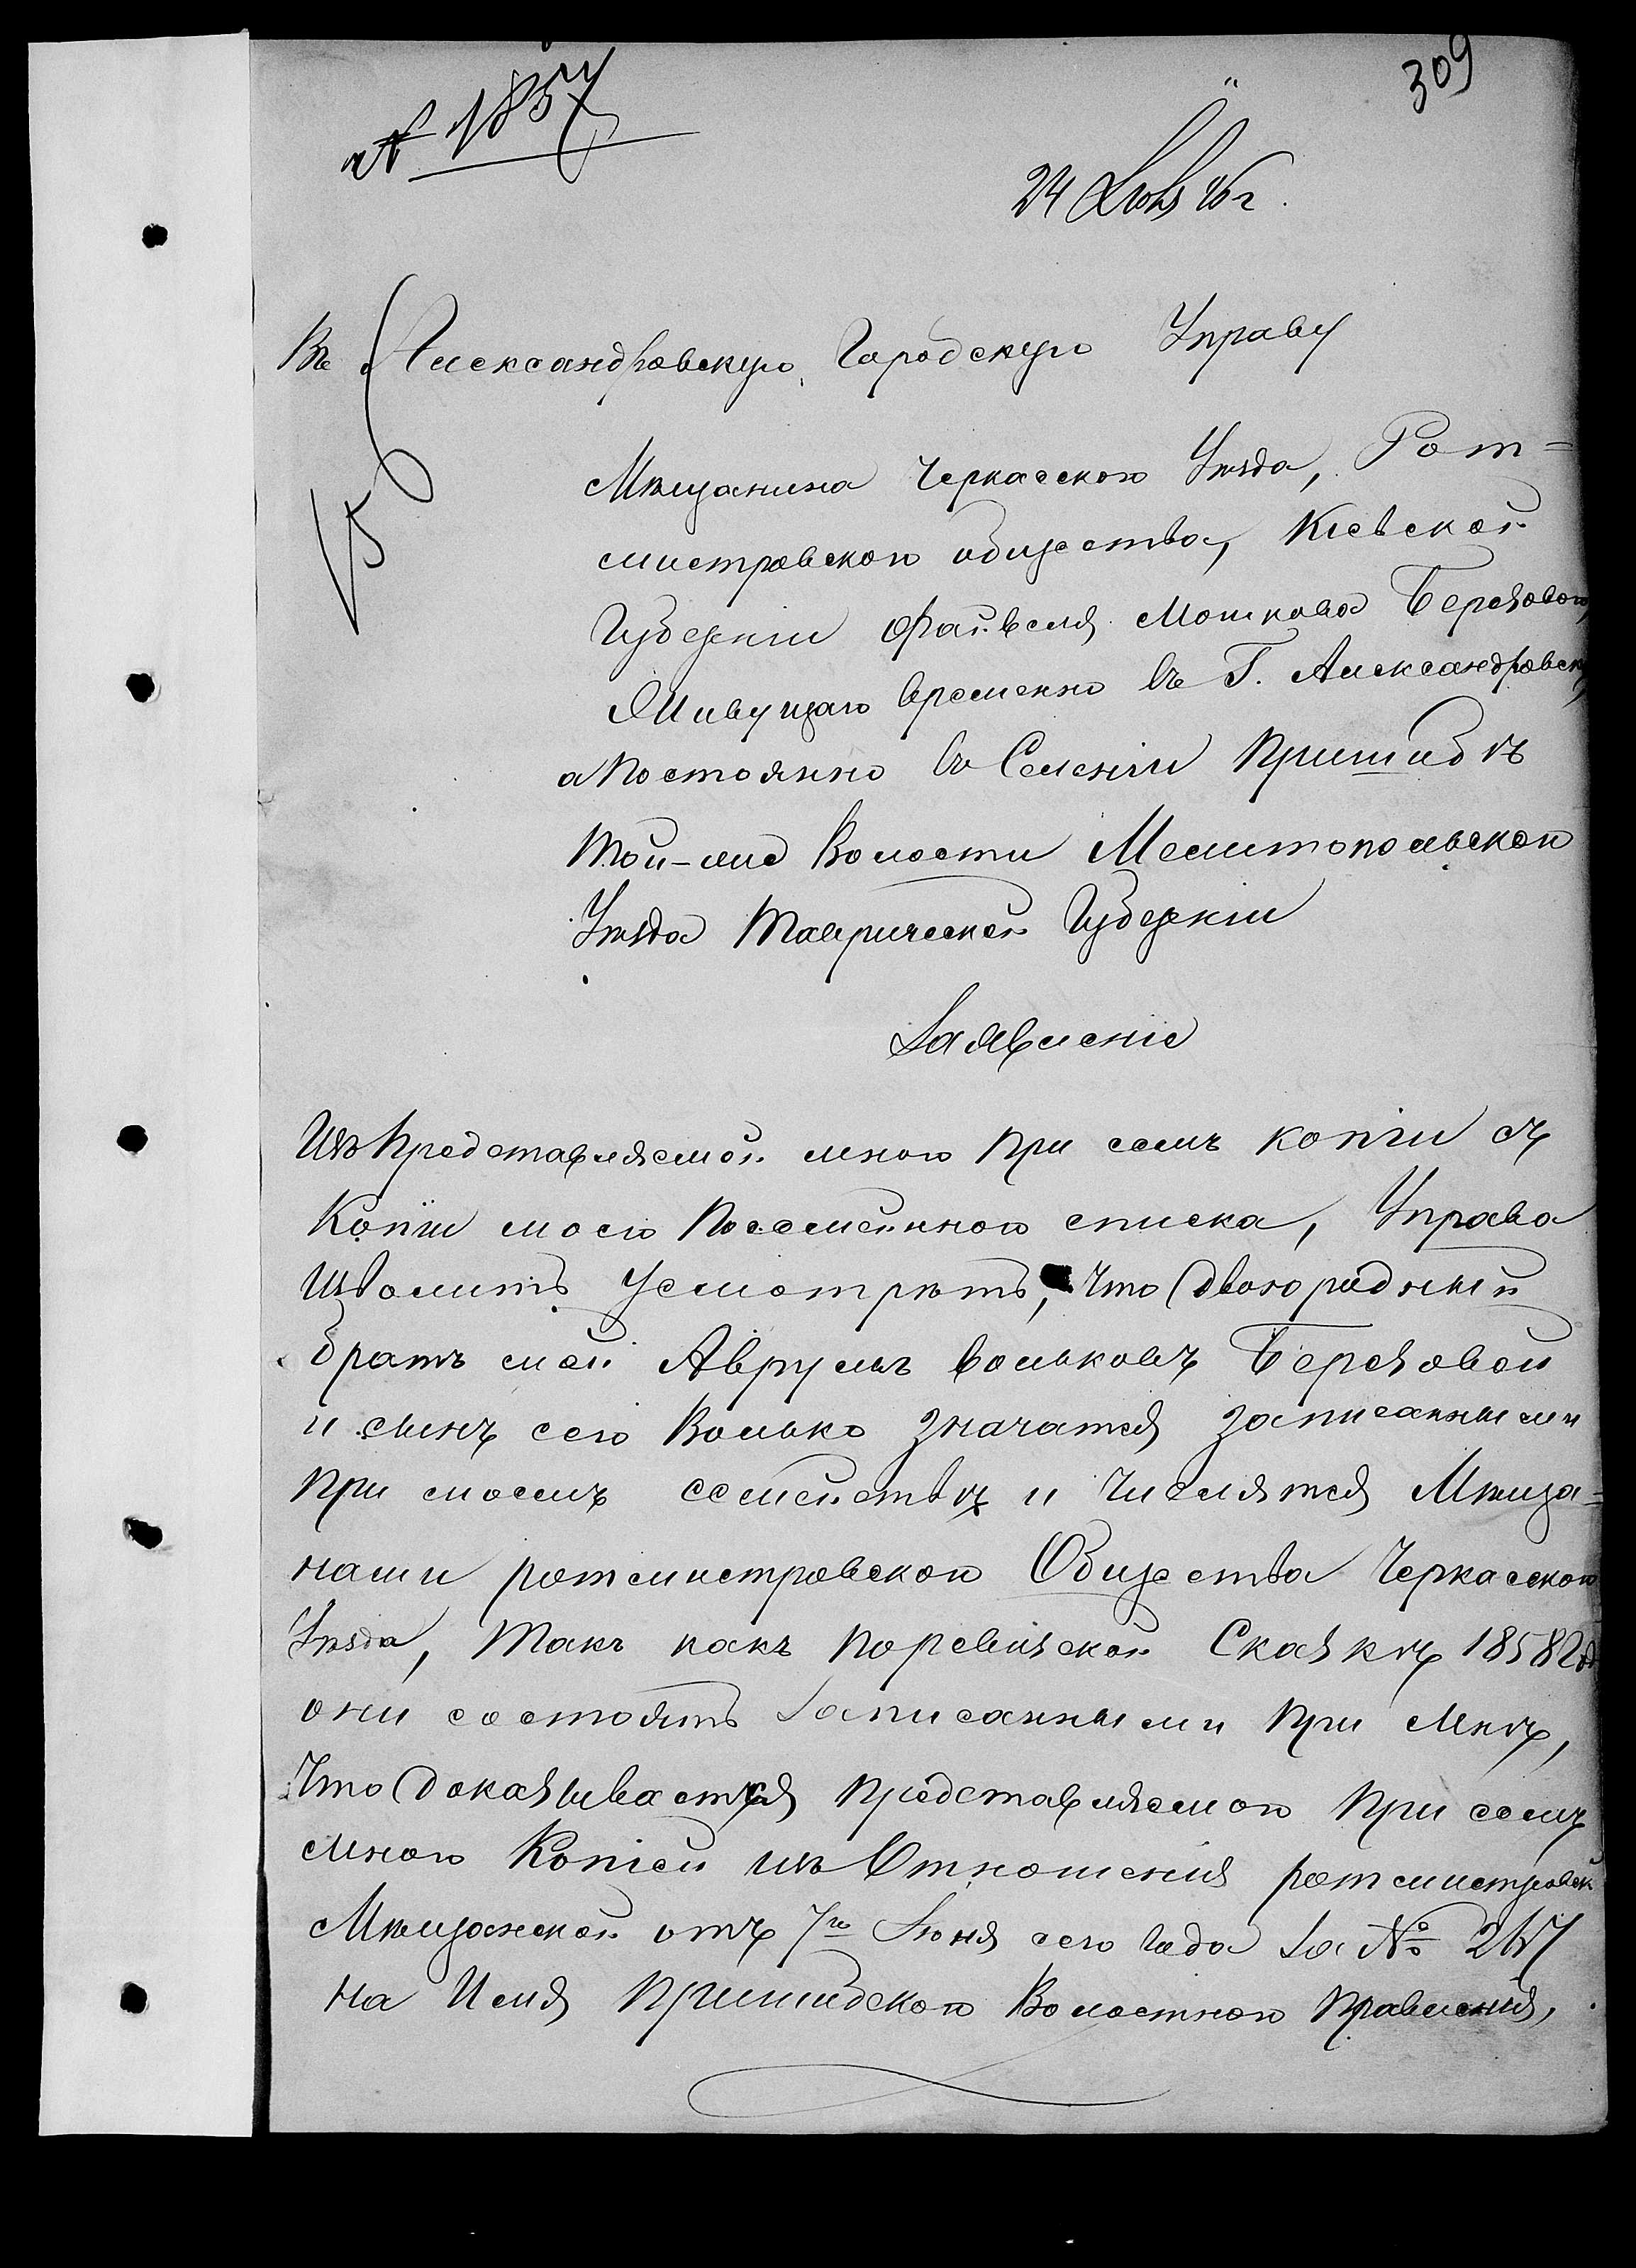 309
№ 1857
24 Іюля
Въ Александровскую Городскую Управу
Мѣщанина Черкасскаго Уѣзда, Рот=
мистровскаго общества, Кіевской
Губерніи Файвеля Мошкова Березоваго,
Живущаго временно въ Г. Александровскѣ,
а Постоянно въ Селеніи Пришибѣ
Той-же Волости Мелитопольскаго
Уѣзда Таврической Губерніи
Заявленіе
Изъ представляемой мною при семъ копіи съ
Копіи моего Посемейнаго списка, Управа
изволитъ усмотрѣть, что двоюродный
братъ мой Аврумъ Вольковъ Березовой
и сынъ его Волько значатся записанными
при моемъ семействѣ и числятся Мѣща=
нами ротмистровскаго Общества Черкасскаго
Уѣзда, Такъ какъ по ревизской Сказкѣ 1858 Года
они состоятъ Записанными при мнѣ,
Что доказывается представляемою при семъ
мною Копіей изъ Отношенія ротмистровск
Мѣщанской отъ 7го Іюня сего года за №
на Имя Пришибскаго Волостного Правленія,